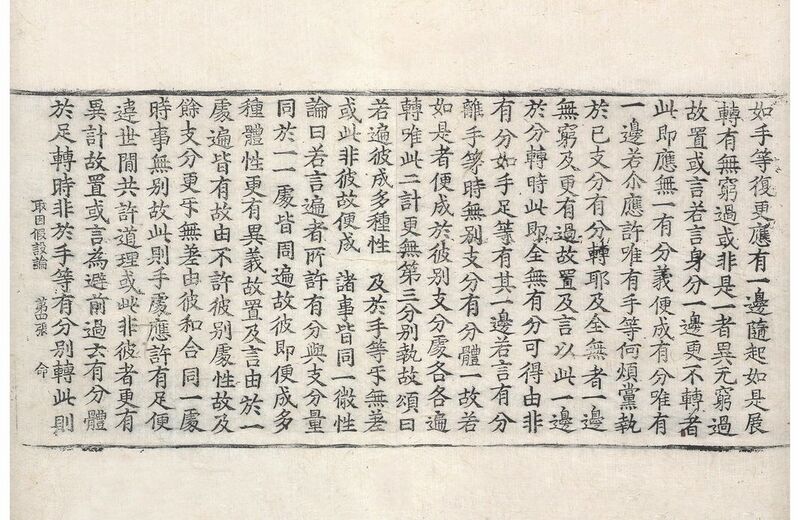 如手等復更應有一邊隨起如是展
轉有無窮過或非是一者異无窮過
故置或言若言身分一邊更不轉者
此即應無一有分義便成有分唯有
一邊若尒應許唯有手等何煩黨執
於已支分有分轉耶及全無者一邊
無窮及更有過故置及言以此一邊
於分轉時此即全無有分可得由非
有分如手足等有其一邊若言有分
離手等時無別支分有分體一故若
如是者便成於彼別支分處各各遍
轉唯此二計更無第三分別執故頌曰
若遍彼成多種性 及於手等㸦無差
或此非彼故便成 諸事皆同一微性
論曰若言遍者所許有分與支分量
同於一一處皆周遍故彼即便成多
種體性更有異義故置及言由於一
處遍皆有故由不許彼別處性故及
餘支分更㸦無差由彼和合同一處
時事無別故此則手處應許有足便
違世間共許道理或此非彼者更有
異計故置或言為避前過去有分體
於足轉時非於手等有分別轉此則
取因假設論 第四張 命